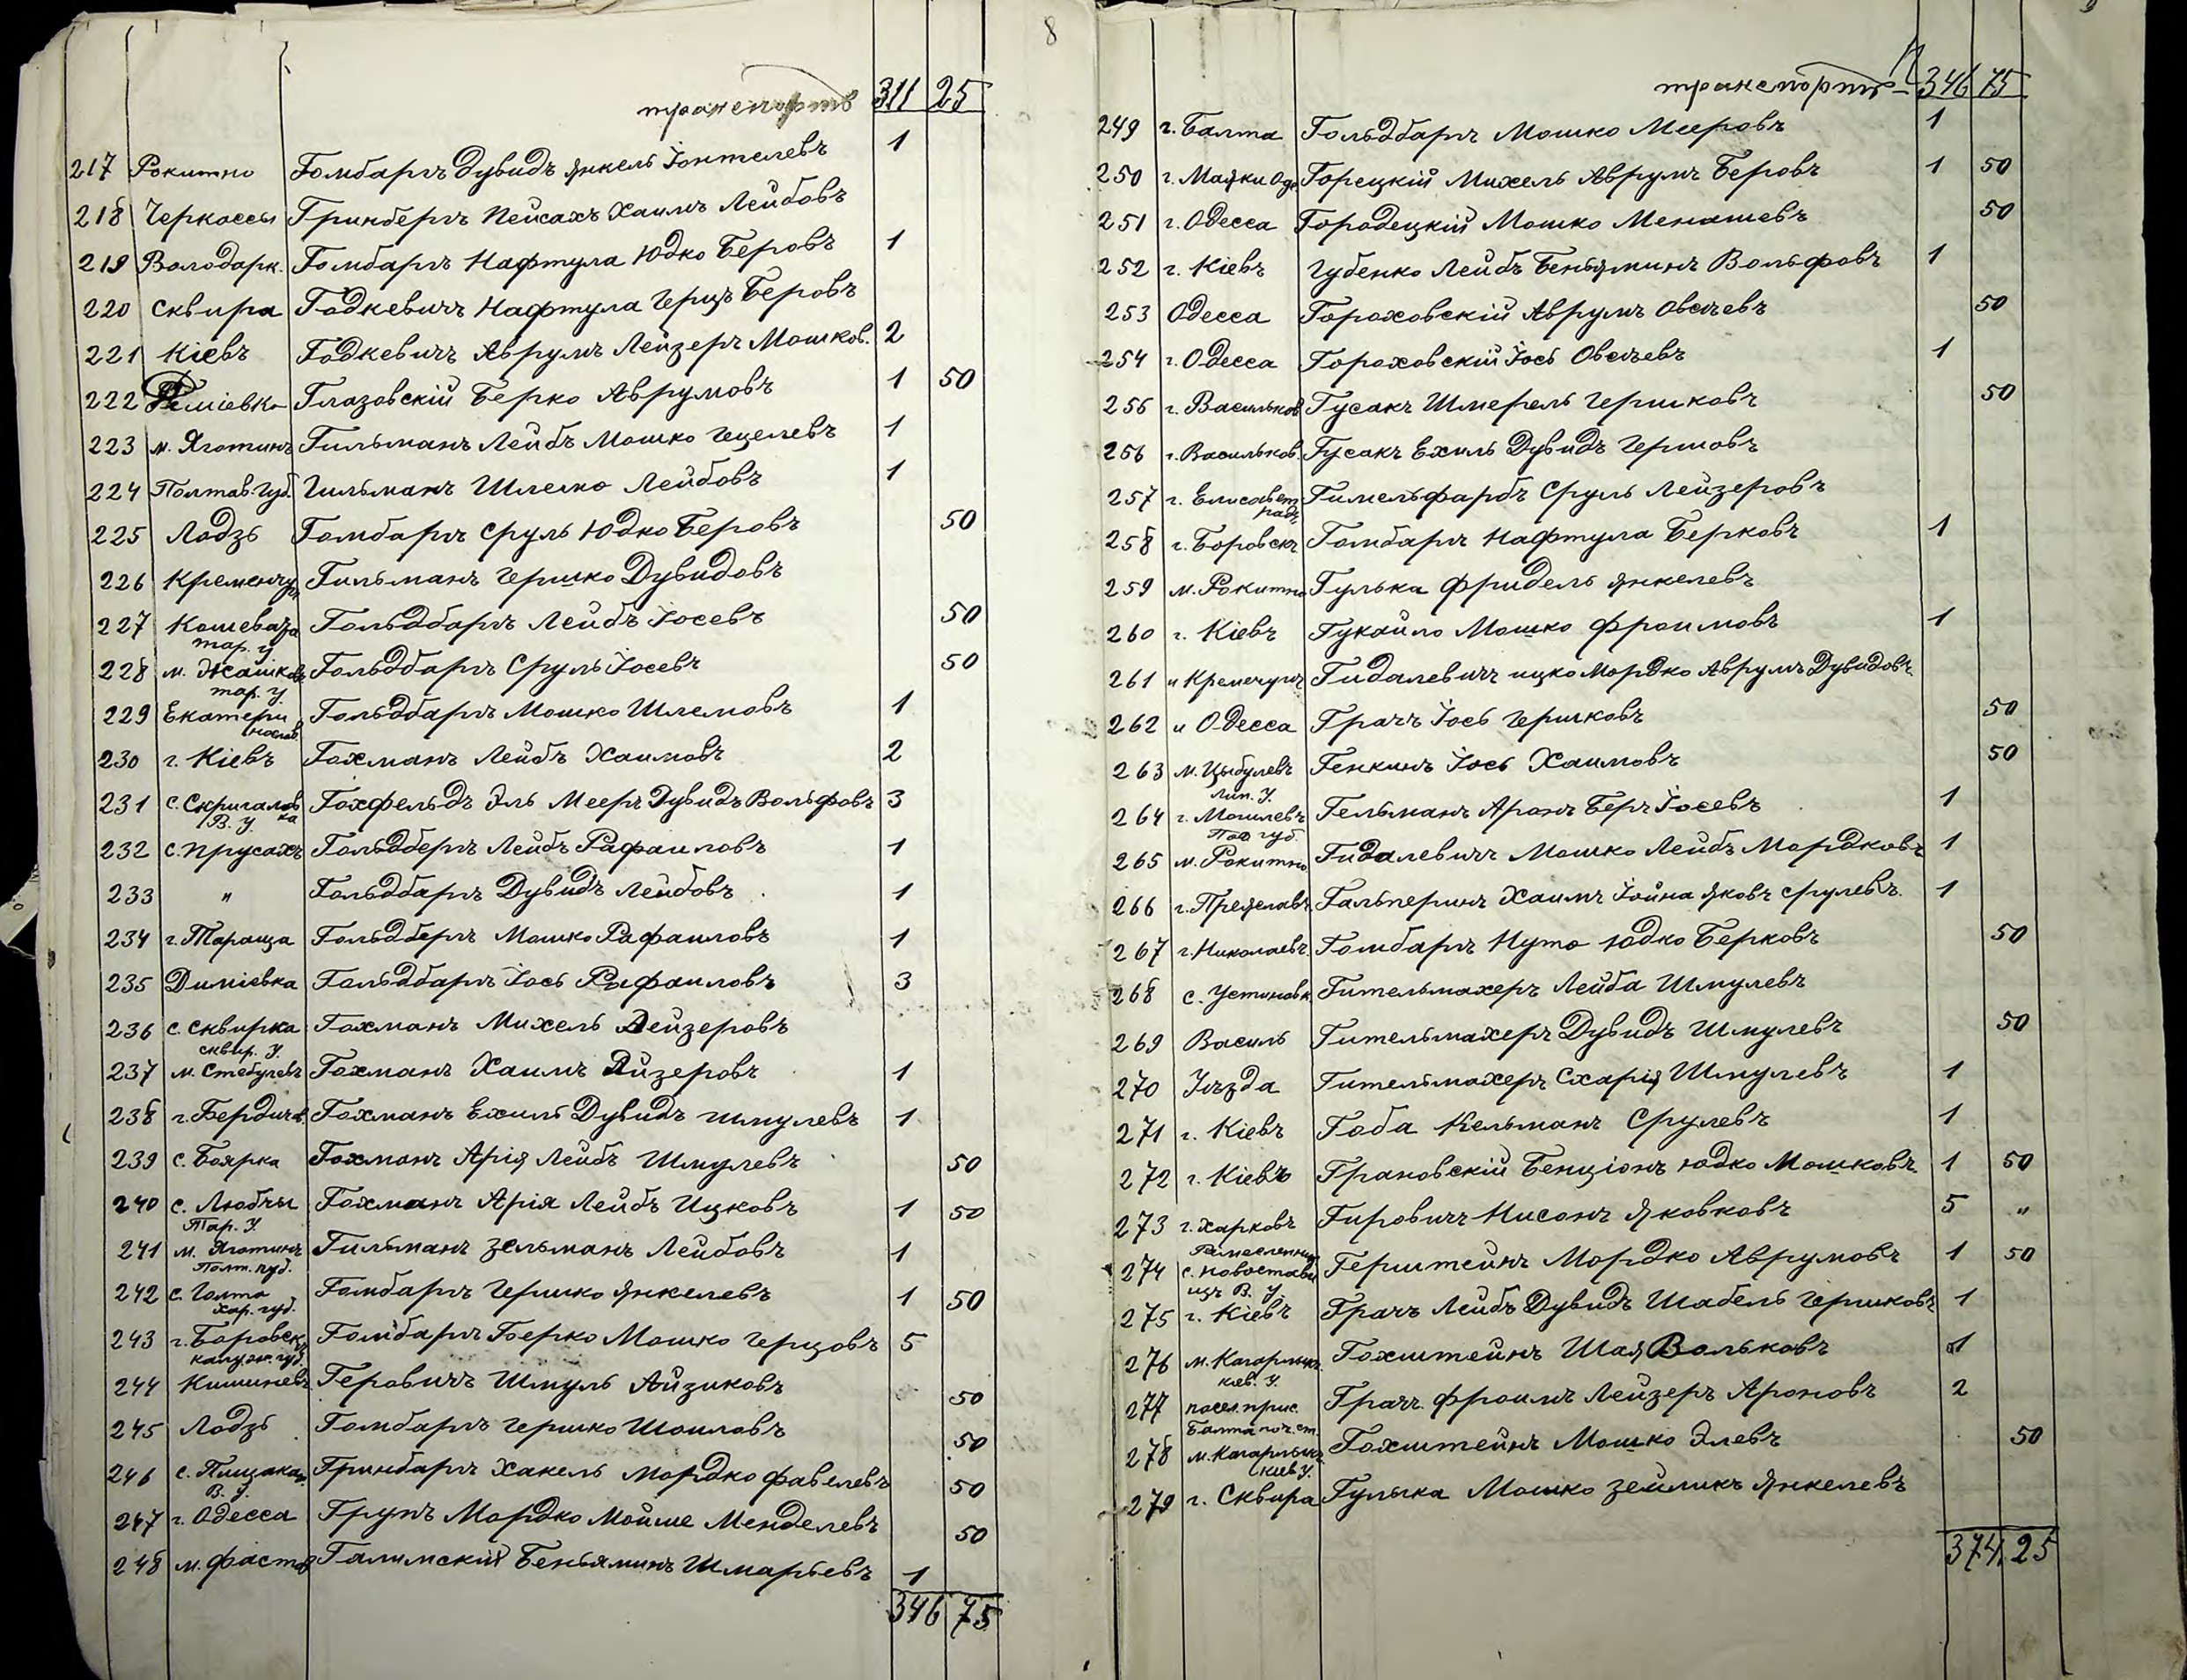 8
транспортъ 311 25
217 Рокитно Гомбаргъ Дувидъ Янкель Іонтелевъ 1
218 Черкассы Гринбергъ Пейсахъ Хаимъ Лейбовъ
219 Володарк. Гомбаргъ Нафтула Юдко Беровъ 1
220 Сквира Годкевичъ Нафтула Герцъ Беровъ
221 Кіевъ Годкевичъ Аврумъ Лейзеръ Мошков. 2
222 Глазовскій Берко Аврумовъ 1 50
223 м. Яготинъ Гильманъ Лейбъ Мошко Гецелевъ 1
224 Полтав. Губ. Гильманъ Шлемо Лейбовъ 1
225 Лодзь Гомбаргъ Сруль Юдко Беровъ 50
226 Кременчуг Гильманъ Гершко Дувидовъ
227 Кошевата Гольдбаргъ Лейбъ Іосевъ 50
тар. у.
228 м. Жашков. Гольдбаргъ Сруль Іосевъ 50
тар. у.
229 Екатери Гольдбаргъ Мошко Шлемовъ 1
нослав.
230 г. Кіевъ Гохманъ Лейбъ Хаимовъ 2
231 с. Скригалов Гохфельдъ Эль Мееръ Дувидъ Вольфовъ 3
В. У. ка
232 с. Прусахъ Гольдбергъ Лейбъ Рафаиловъ 1
233 " Гольдбаргъ Дувидъ Лейбовъ 1
234 г. Тараща Гольдбергъ Мошко Рафаиловъ 1
235 Диміевка Гольдбаргъ Іось Рафаиловъ 3
236 с. Сквирка Гохманъ Михель Лейзеровъ
сквир. У.
237 м. Стебулевъ Гохманъ Хаимъ Айзеровъ 1
238 г. Бердичев. Гохманъ Ехиль Дувидъ Шмулевъ 1
239 с. Боярка Гохманъ Арія Лейбъ Шмулевъ 50
240 с. Любчы Гохманъ Арія Лейбъ Ицковъ 1 50
Тар. У.
241 м. Яготинъ Гильманъ Зельманъ Лейбовъ 1
Полт. губ.
242 с. Голта Гомбаргъ Гершко Янкелевъ 1 50
хар. губ.
243 г. Боровск Гомбаргъ Берко Мошко Герцовъ 5
калуж. губ.
244 Кишиневъ Геровичъ Шмуль Айзиковъ 50
245 Лодзь Гомбаргъ Гершко Шоиловъ 50
246 с. Гринбаргъ Хакель Мордко Фавелевъ 50
В. У.
247 г. Одесса Грунъ Мордко Мойше Менделевъ 50
248 м. Фастов Галимскій Беньяминъ Шмарьевъ 1
346 75
транспортъ 346 75
249 г. Балта Гольдбаргъ Мошко Мееровъ 1
250 г. Маяки Оде Горецкій Михель Аврумъ Беровъ 1 50
251 г. Одесса Городецкій Мошко Менашевъ 50
252 г. Кіевъ Губенко Лейбъ Беньяминъ Вольфовъ 1
253 Одесса Гороховскій Аврумъ Овсѣевъ 50
254 г. Одесса Гороховскій Іось Овсѣевъ 1
255 г. Васильков Гусакъ Шмерель Гершковъ 50
256 г. Васильков. Гусакъ Ехиль Дувидъ Гершовъ
257 г. Елисавет Гимельфарбъ Сруль Лейзеровъ
градъ
258 г. Боровскъ Гомбаргъ Нафтула Берковъ 1
259 м. Рокитно Гулька Фридель Янкелевъ
260 г. Кіевъ Гукайло Мошко Фроимовъ 1
261 и Кременчугъ Гидалевичъ Ицко Мордко Аврумъ Дувидовъ
262 и Одесса Грачъ Іось Гершковъ 50
263 м. Цыбулевъ Генкинъ Іось Хаимовъ 50
Лип. У.
264 г. Могилевъ Гельманъ Аронъ Беръ Іосевъ 1
Под губ.
265 м. Рокитно Гидалевичъ Мошко Лейбъ Мордковъ 1
266 г. Переяславъ Гальперинъ Хаимъ Іойна Яковъ Срулевъ 1
267 г. Николаевъ Гомбаргъ Нута Юдко Берковъ 50
268 с. Устиновк. Гительмахеръ Лейба Шмулевъ
269 Василь Гительмахеръ Дувидъ Шмулевъ 50
270 Уѣзда Гительмахеръ Схарія Шмулевъ 1
271 г. Кіевъ Гоба Кельманъ Срулевъ 1
272 г. Кіевъ Грановскій Бенціонъ Юдко Мошковъ 1 50
273 г. Харковъ Гировичъ Нисонъ Яковковъ 5 "
274 с. Новостави Герштейнъ Мордко Аврумовъ 1 50
цы В. У.
275 г. Кіевъ Грачъ Лейбъ Дувидъ Шабель Гершковъ 1
276 м. Кагарлыкъ Гохштейнъ Шая Вольковъ 1
кіев. У.
277 Грачъ Фроимъ Лейзеръ Ароновъ 2
Балта
278 м. Кагарлыкъ Гохштейнъ Мошко Элевъ 50
кіев У.
279 г. Сквира Гулька Мошко Зейликъ Янкелевъ
374 25